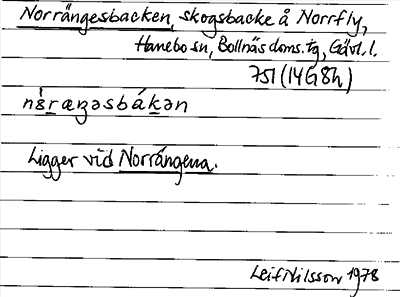 Norrängesbacken, skogsbacke å Norrfly,
Hanebo sn, Bollnäs doms.tg, Gävl.l.
751 (14G8h)
Ligger vid Norrängena.
Leif Nilsson 1978